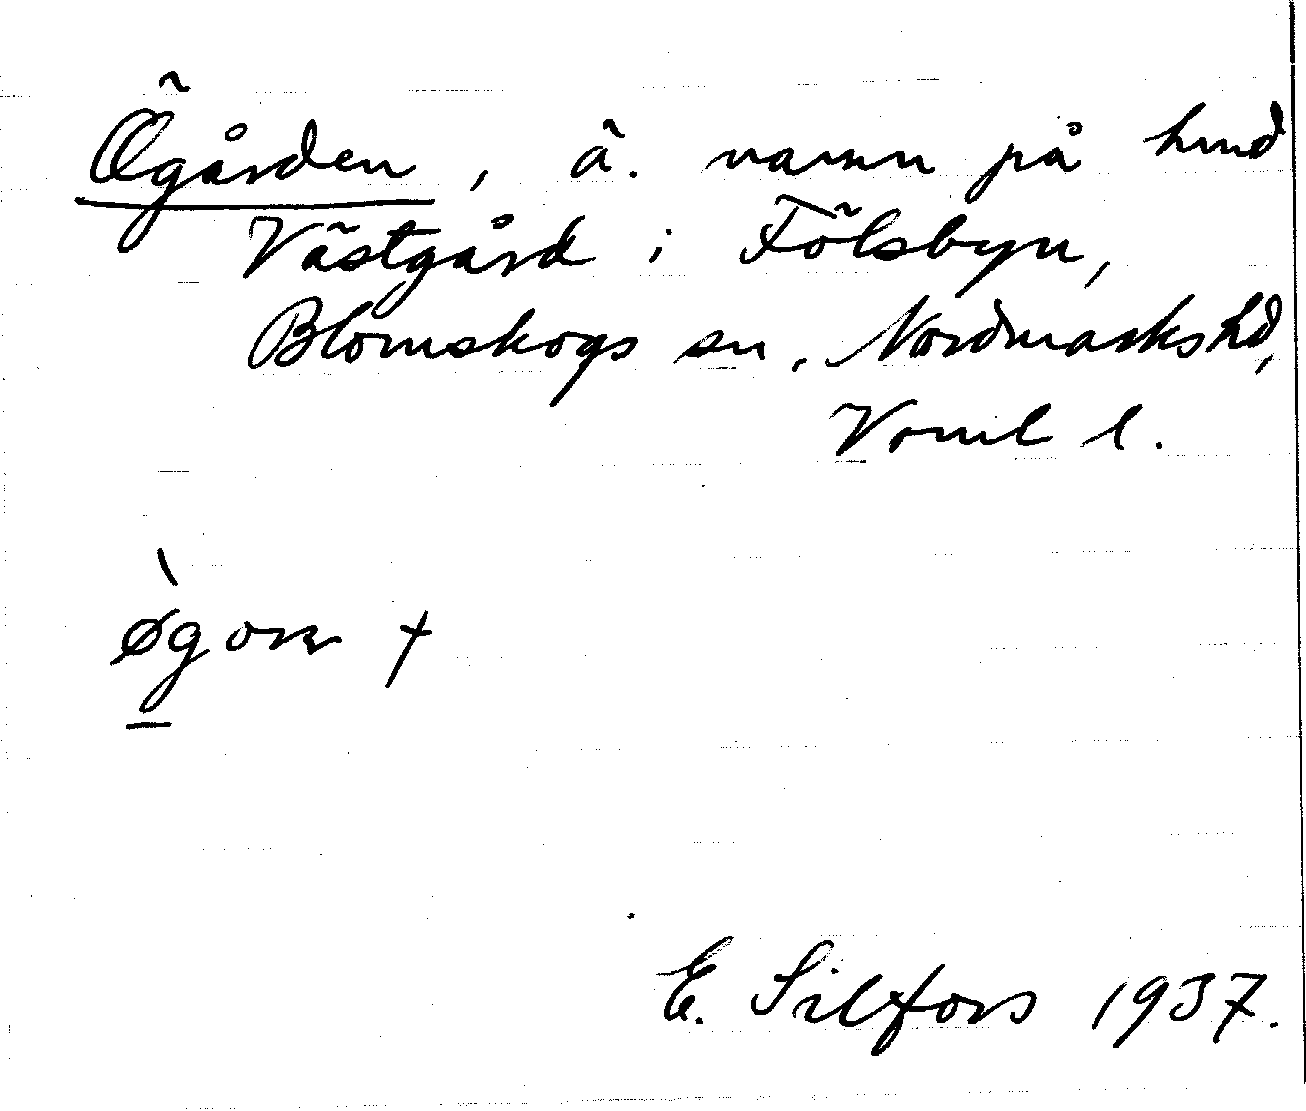 Ögården, ä. namn på hmd
Västgård i Fölsbyn,
Blomskogs sn, Nordmarks hd,
Vrml l.
øgoɳ +
E. Silfors 1937.